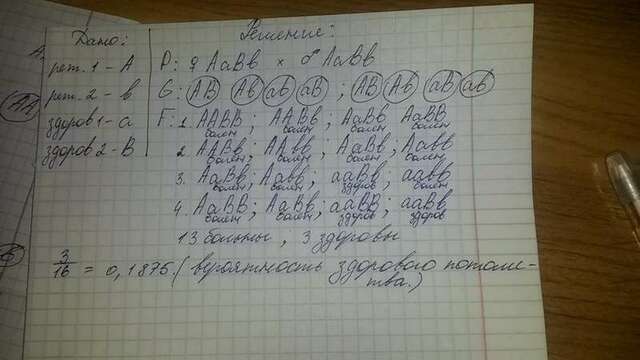 Дано:
Решение:
рет. 1 - А
рет. 2 - в
здоров 1 - а
здоров 2 - В
P: ♀ АаВв × ♂ АаВв
G: АВ Ав ав аВ ; АВ Ав аВ ав
F: 1. ААВВ; ААВв; АаВв АаВВ
болен болен болен болен
2. ААВв; ААвв; АаВв; Аавв
болен болен болен болен
3. АаВв; Аавв; ааВв; аавв
болен болен здоров болен
4. АаВВ; АаВв; ааВВ; ааВв
болен болен здоров здоров
13 больны, 3 здоровы
3/16 = 0,1875 (вероятность здорового потомс-
тва.)
АА